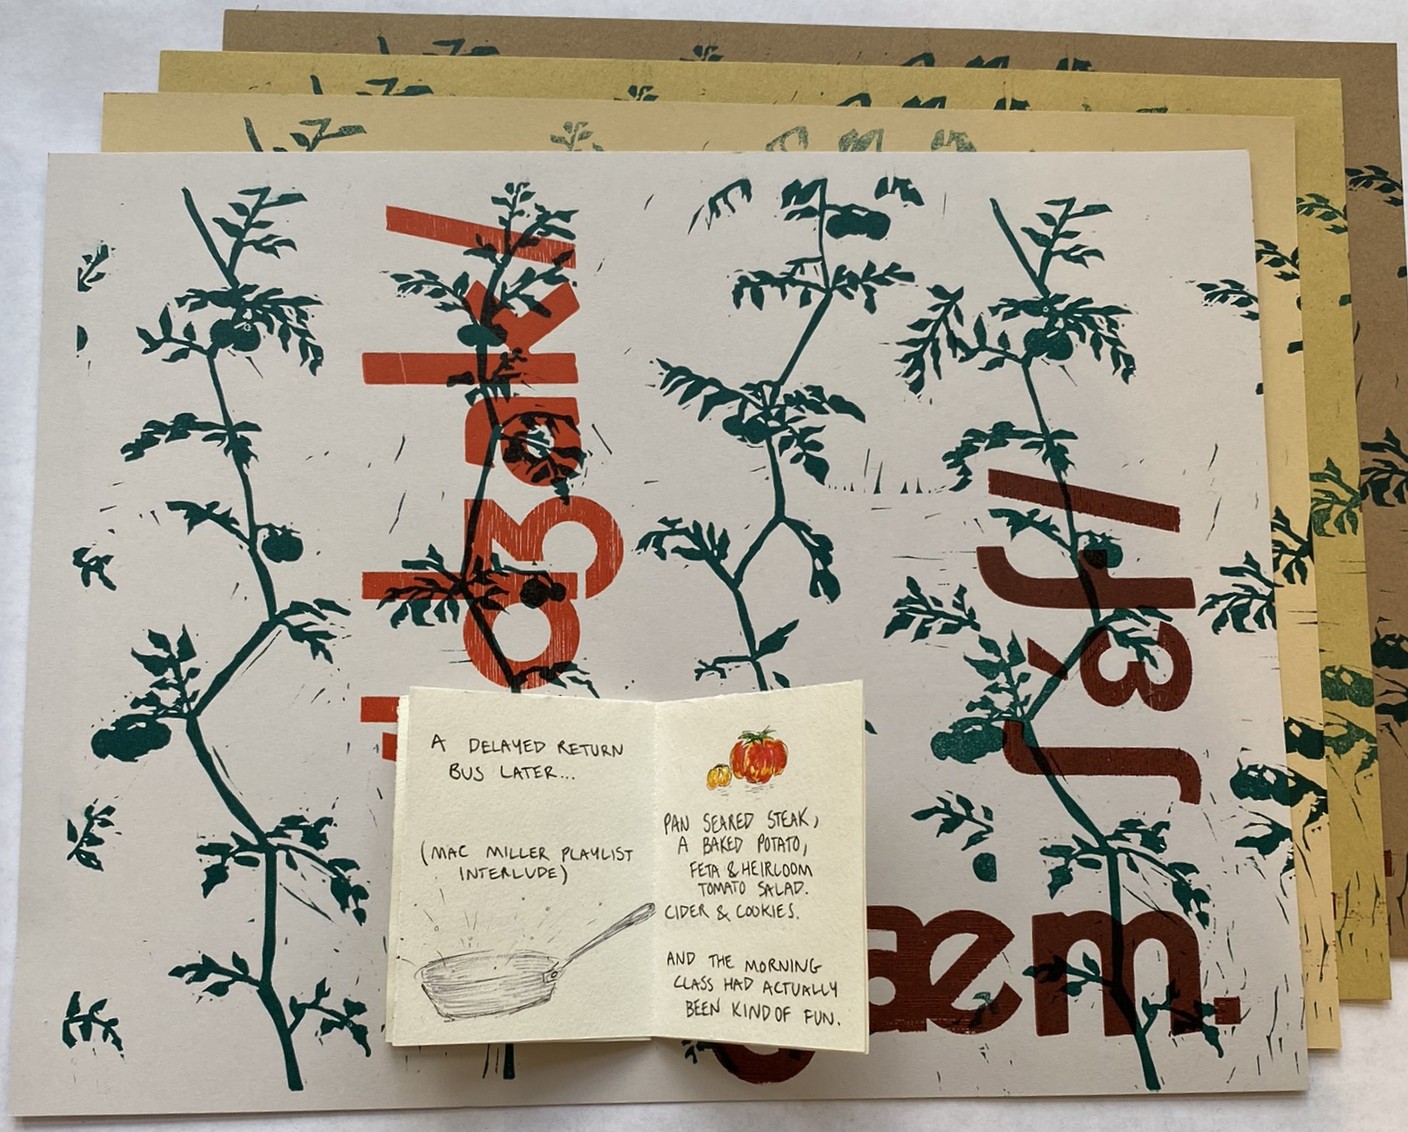 dʒak/
æm.
A DELAYED RETURN
BUS LATER...
(MAC MILLER PLAYLIST
INTERLUDE)
PAN SEARED STEAK,
A BAKED POTATO,
FETA & HEIRLOOM
TOMATO SALAD.
CIDER & COOKIES.
AND THE MORNING
CLASS HAD ACTUALLY
BEEN KIND OF FUN.